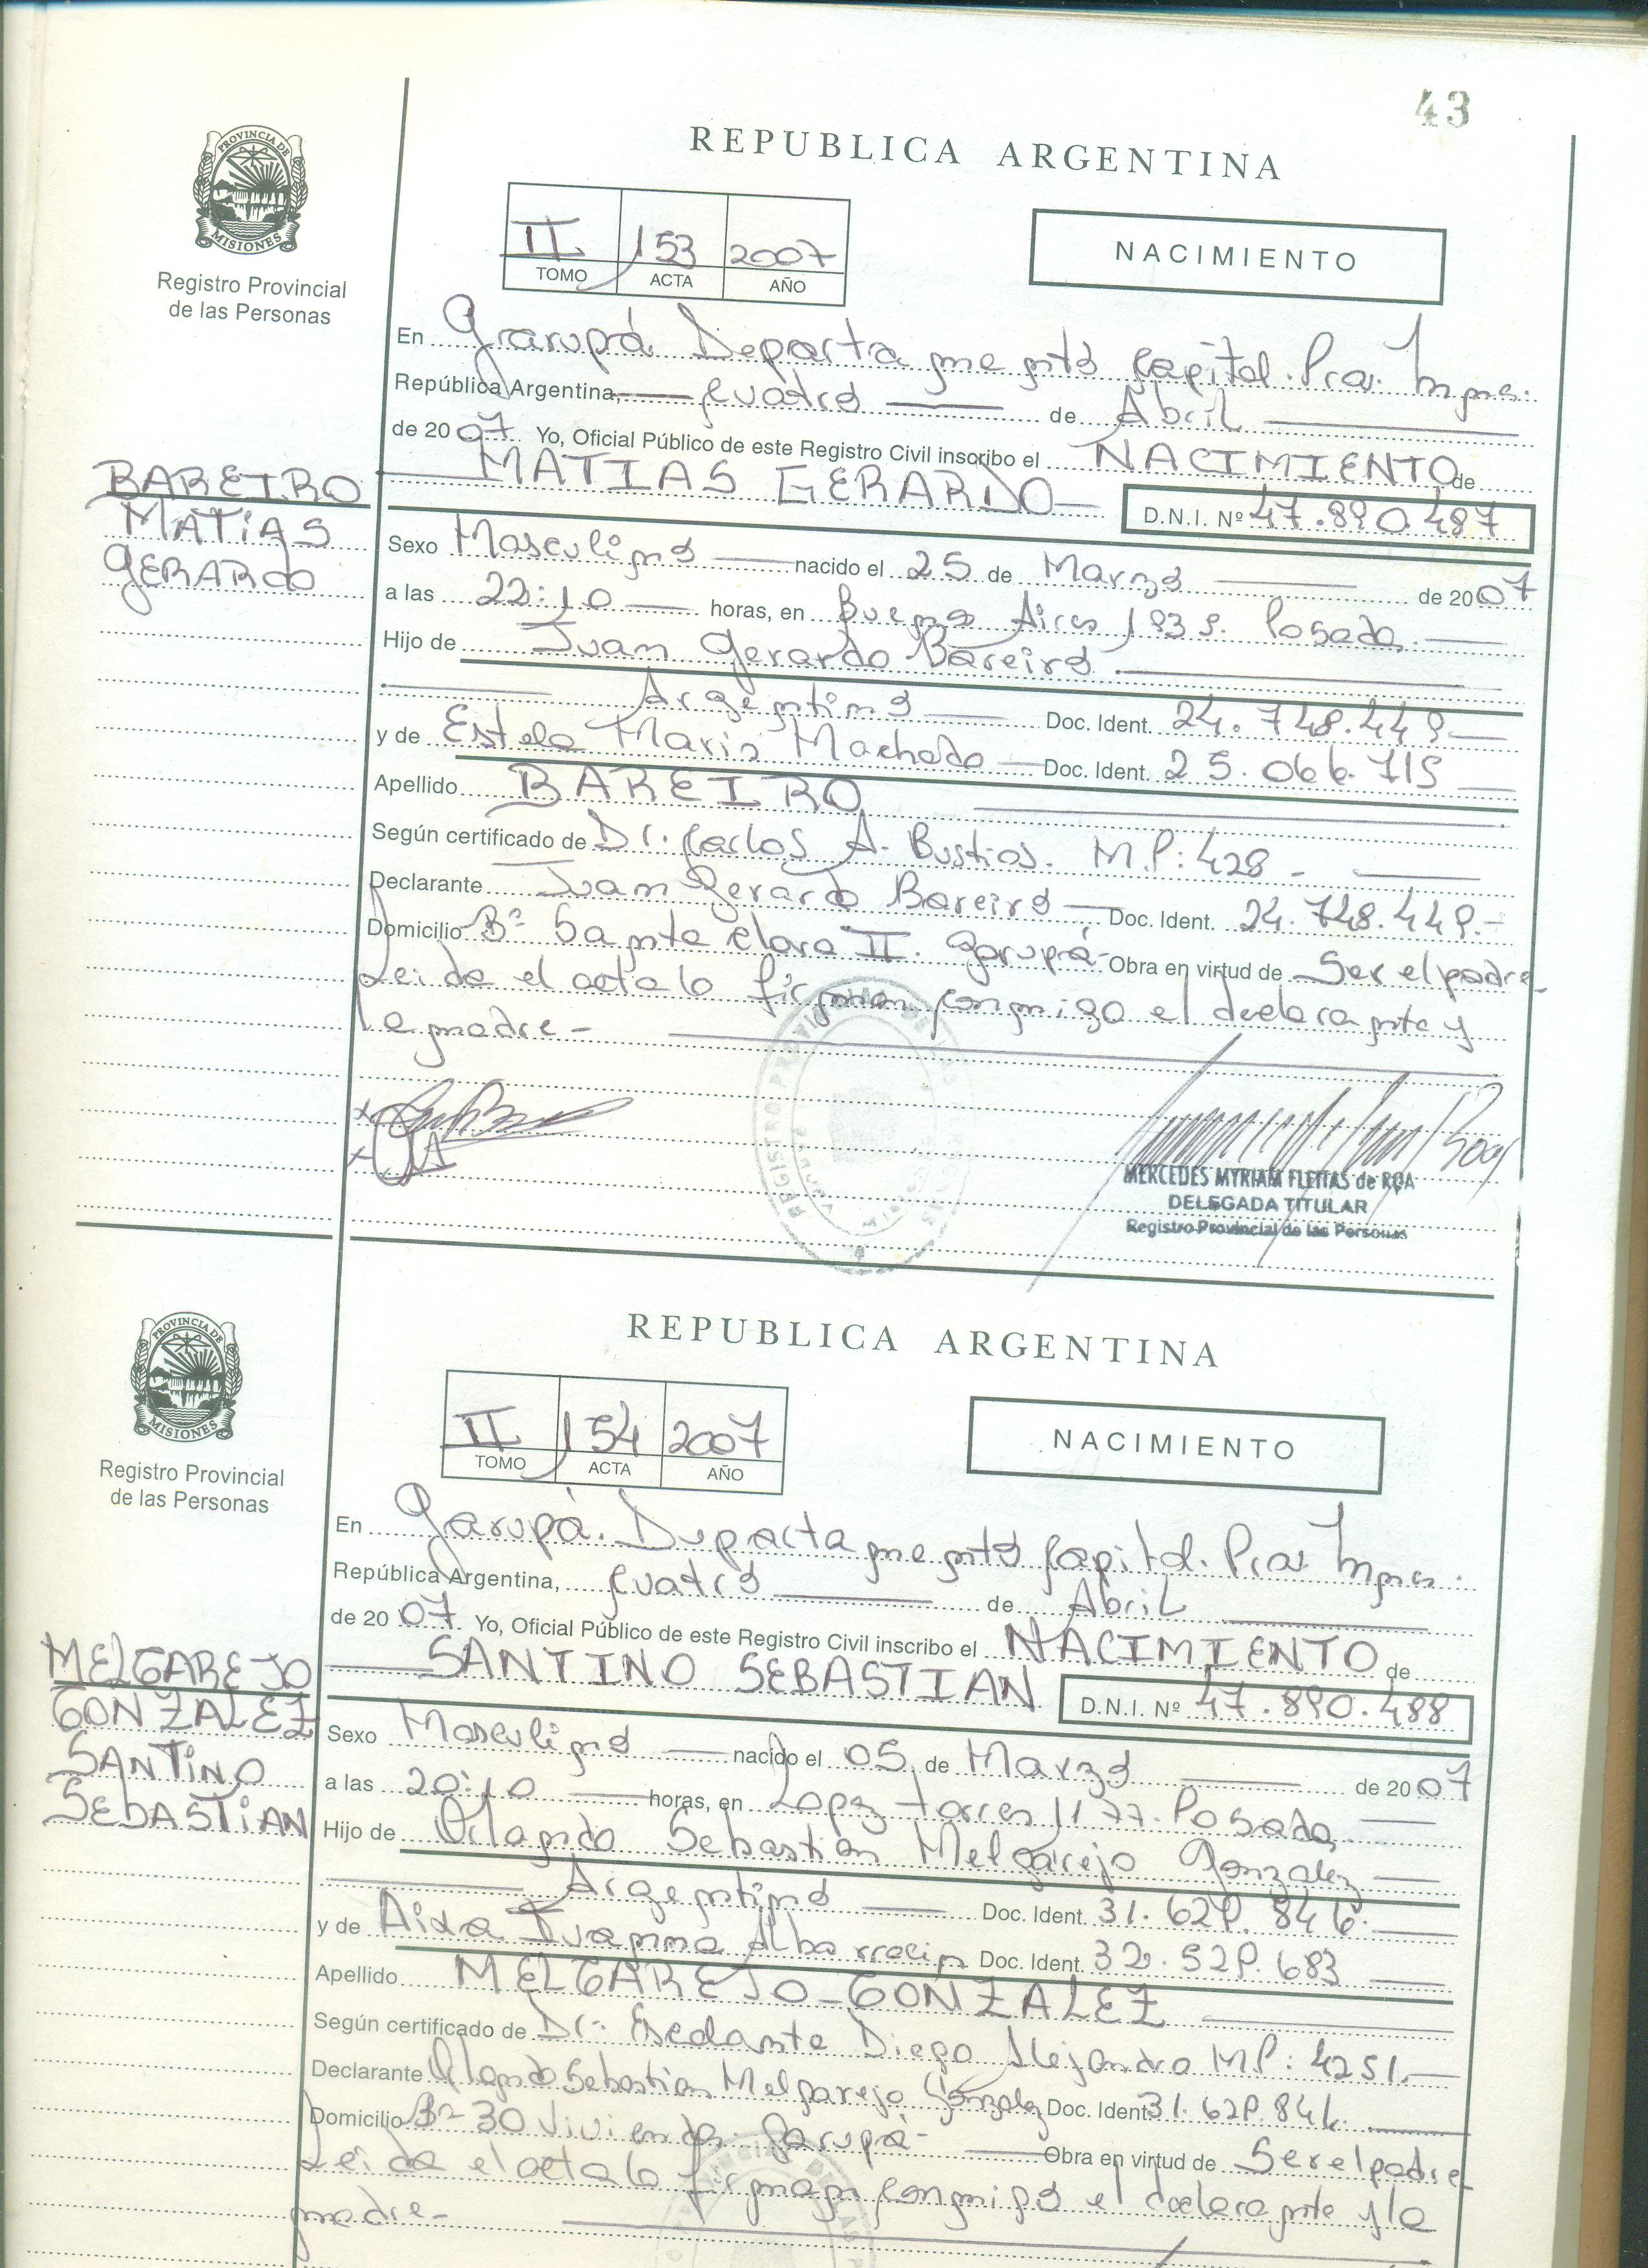 43
PROVINCIA DE
MISIONES
Registro Provincial
de las Personas
REPUBLICA ARGENTINA
II 153 2007
TOMO ACTA AÑO
NACIMIENTO
En Garupá Departamento Capital. Pcia. Mnes.
República Argentina, cuatro de Abril
de 2007 Yo, Oficial Público de este Registro Civil inscribo el NACIMIENTO de
MATIAS GERARDO D.N.I. Nº 47.890.487
BAREIRO
MATIAS
GERARDO
Sexo Masculino nacido el 25 de Marzo de 2007
a las 22:10 horas, en Buenos Aires 1939. Posadas
Hijo de Juan Gerardo Bareiro
Argentino Doc. Ident. 24.748.449
y de Estela Maris Machado Doc. Ident. 25.066.715
Apellido BAREIRO
Según certificado de Dr. Carlos A. Bustios. M.P: 428
Declarante Juan Gerardo Bareiro Doc. Ident. 24.748.449.-
Domicilio Bº Santa Clara II. Garupá- Obra en virtud de Ser el padre-
Leida el acta la firman conmigo el declarante y
la madre-
MERCEDES MYRIAM FLEITAS de ROA
DELEGADA TITULAR
Registro Provincial de las Personas
PROVINCIA DE
MISIONES
Registro Provincial
de las Personas
REPUBLICA ARGENTINA
II 154 2007
TOMO ACTA AÑO
NACIMIENTO
En Garupá. Departamento Capital. Pcia. Mnes.
República Argentina, cuatro de Abril
de 2007 Yo, Oficial Público de este Registro Civil inscribo el NACIMIENTO de
SANTINO SEBASTIAN D.N.I. Nº 47.890.488
MELGAREJO
GONZALEZ
SANTINO
SEBASTIAN
Sexo Masculino nacido el 05 de Marzo de 2007
a las 20:10 horas, en Lopez Torres 1177. Posadas
Hijo de Orlando Sebastian Melgarejo Gonzalez
Argentino Doc. Ident. 31.629.846.
y de Aida Ivanna Albarracin Doc. Ident. 32.529.683
Apellido MELGAREJO-GONZALEZ
Según certificado de Dr. Escalante Diego Alejandro M.P: 4251.
Declarante Orlando Sebastian Melgarejo Gonzalez Doc. Ident. 31.629.846.
Domicilio Bº 30 Viviendas. Garupá- Obra en virtud de Ser el padre
Leida el acta la firman conmigo el declarante y la
madre-